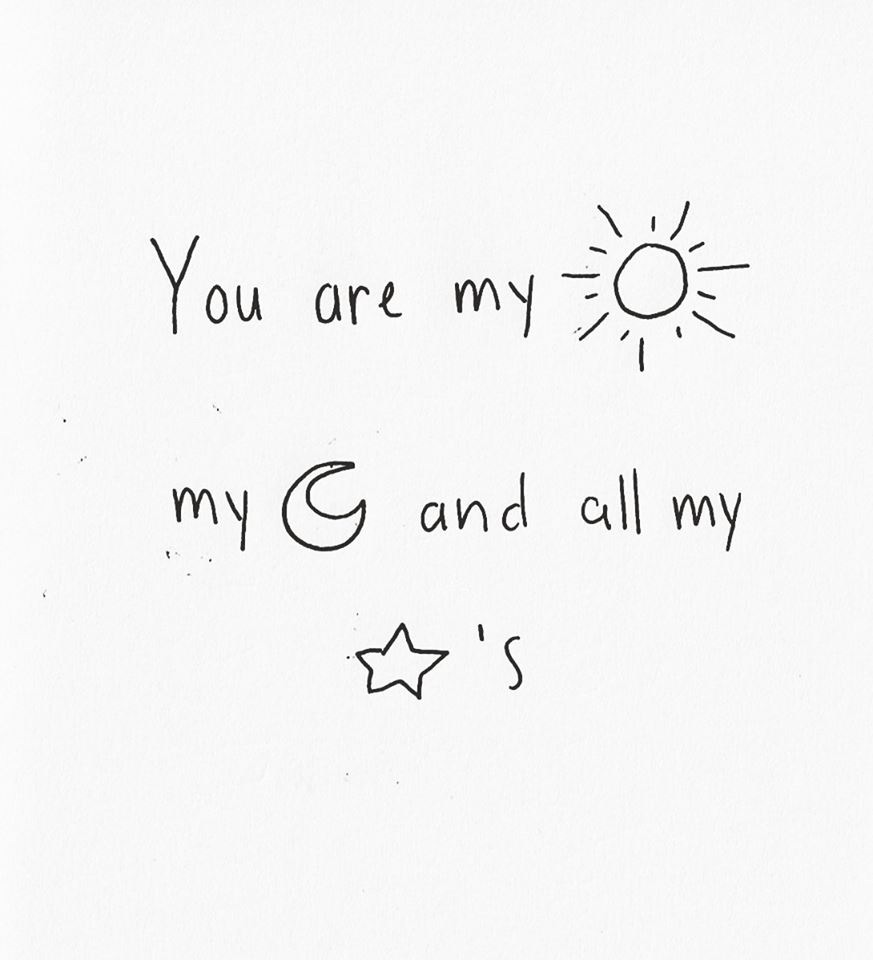 You are my
my and all my
's